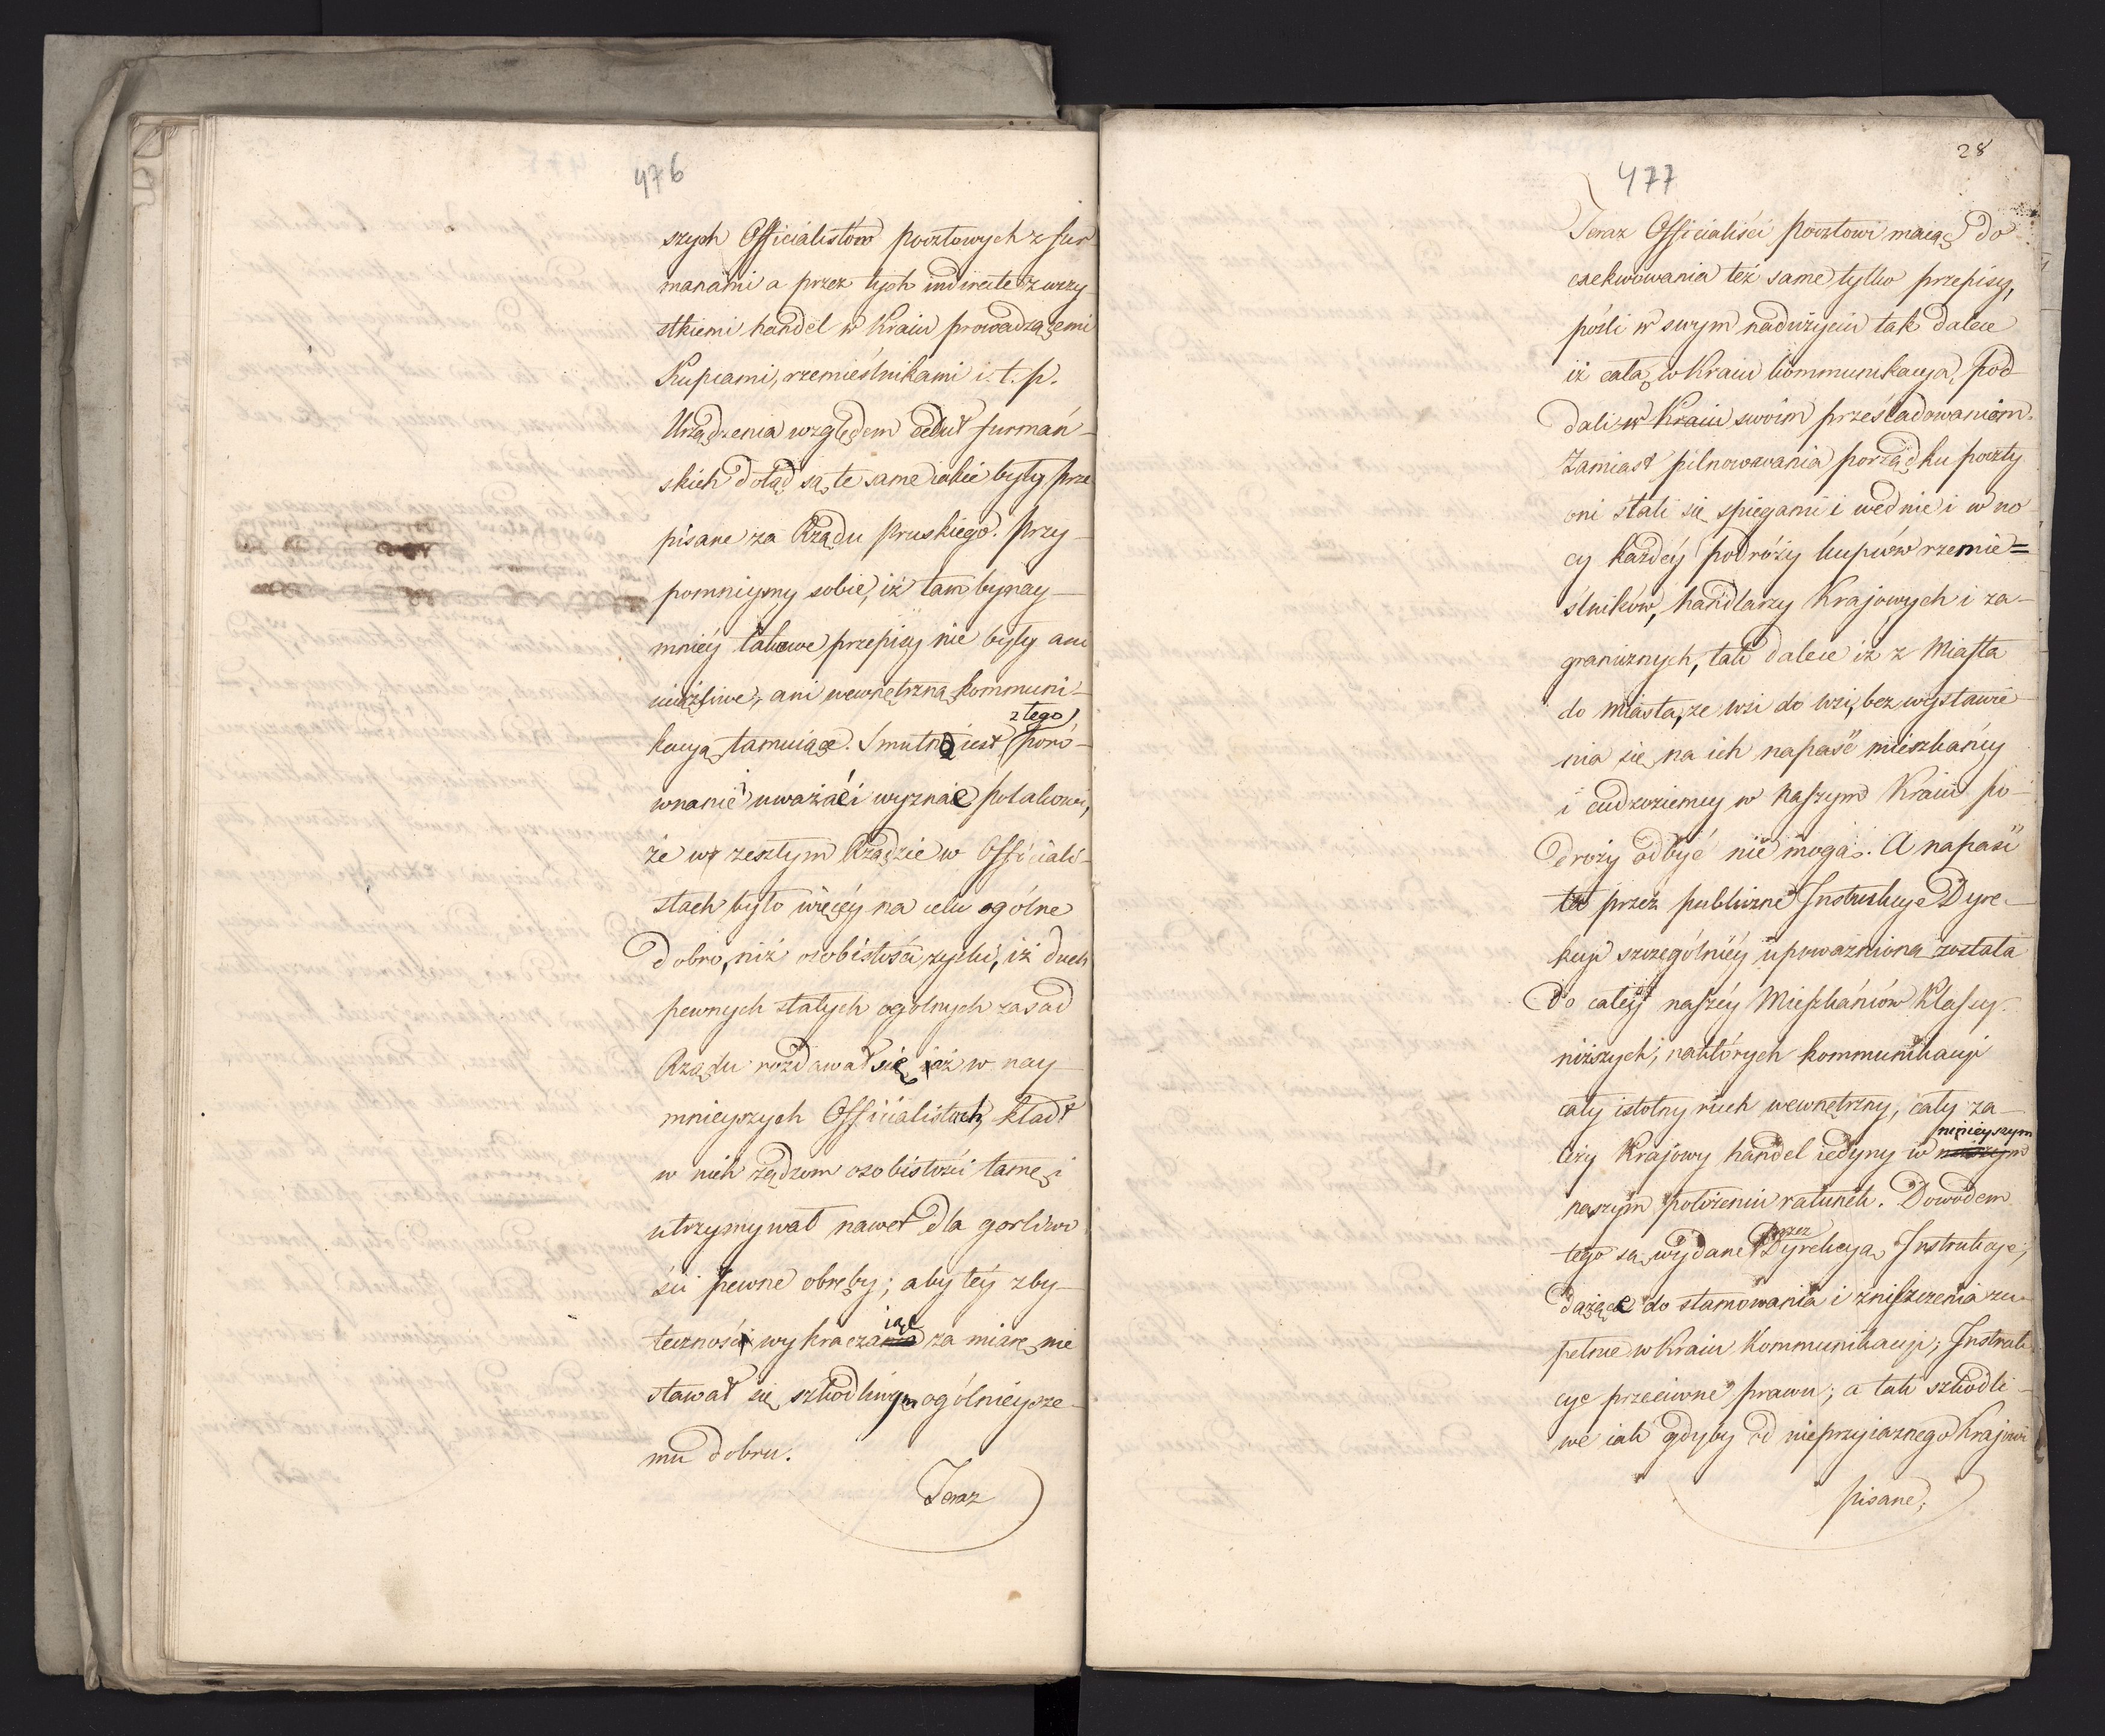 476
szych Officialistów pocztowych z fur
manami a przez tych indirecte z wszy-
stkiemi handel w Kraiu prowadzącemi
Kupcami, rzemieślnikami i.t.p.
Urządzenia względem defur furmań-
skich dotąd są te same iakie były prze
pisane za Rządu Pruskiego. Przy-
pomniymy sobie, iż tam bynay-
mniéy takowe przepisy nie były ani
uciążliwe, ani wewnętrzną kommuni-
kacyą tamuiące. Smutno iest z tego poró-
wnanie uważać i wyznać Polakowi,
że w zeszłym Rządzie w Officiali-
stach było więcéy na celu ogólne
dobro, niż osobistości zyski, iż duch
pewnych stałych ogólnych zasad
Rządu rozdawał się iuż w nay-
mnieyszych Officialistach, kładł
w nich żądzom osobistości tamę, i
utrzymywał nawet dla gorliwo
ści pewne obręby; aby téy zby-
teczność wykraczaiąc za miarę, nie
stawał się szkodliwym ogólnieysze-
mu dobru.
Teraz
28
477
Teraz Officialiści pocztowi maiąc do
exekwowania też same tylko przepisy,
pośli w swym nadużyciu tak dalece
iż całą w Kraiu kommunikacyą, pod
dali w Kraiu swoim prześladowaniom.
Zamiast pilnowania porządku poczty
oni stali się spiegami i wednie i w no
cy każdéy podróży kupców rzemie=
ślników, handlarzy Krajowych i za-
granicznych, tak dalece iż z Miasta
do miasta, ze wsi do wsi, bez wystawie
nia się na ich napaść mieszkańcy
i cudzoziemcy w naszym Kraiu po-
droży odbyć nie mogą. A napaść
ta przez publiczne Instrukcye Dyre-
kcyi szczególniéy upoważniona została
do całéy naszéy Mieszkańców Klassy
niższych, na których kommunikacyi
cały istotny ruch wewnętrzny, cały za-
leży Krajowy handel iedyny w ninieyszym
naszym położeniu ratunek. Dowodem
tego są wydane przez Dyrekcyą Instrukcye,
dążące do stamowania i zniszczenia zu-
pełnie w Kraiu Kommunikacyi; Instruk
cye przeciwne prawu; a tak szkodli-
we iak gdyby od nieprzyiaznego Krajowi
pisane;